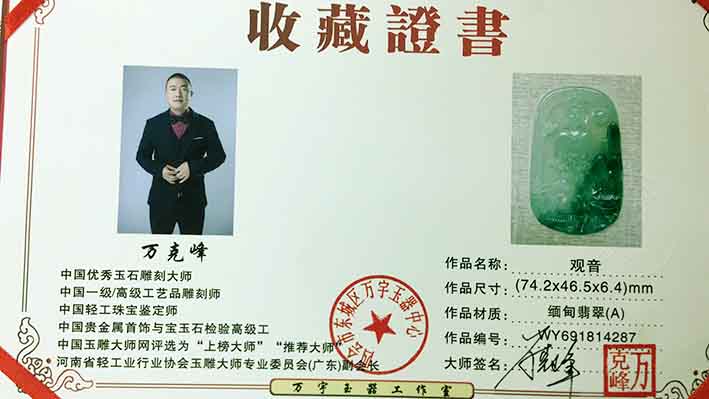 收藏證書
万克峰
中国优秀玉石雕刻大师
中国一级/高级工艺品雕刻师
中国轻工珠宝鉴定师
中国贵金属首饰与宝玉石检验高级工
中国玉雕大师网评选为“上榜大师”“推荐大师”
河南省轻工业行业协会玉雕大师专业委员会(广东)副会长
四会市东城区万字玉器中心
作品名称: 观音
作品尺寸: (74.2x46.5x6.4)mm
作品材质: 缅甸翡翠(A)
作品编号: WY691814287
大师签名: 万克峰
万克峰
万字玉器工作室